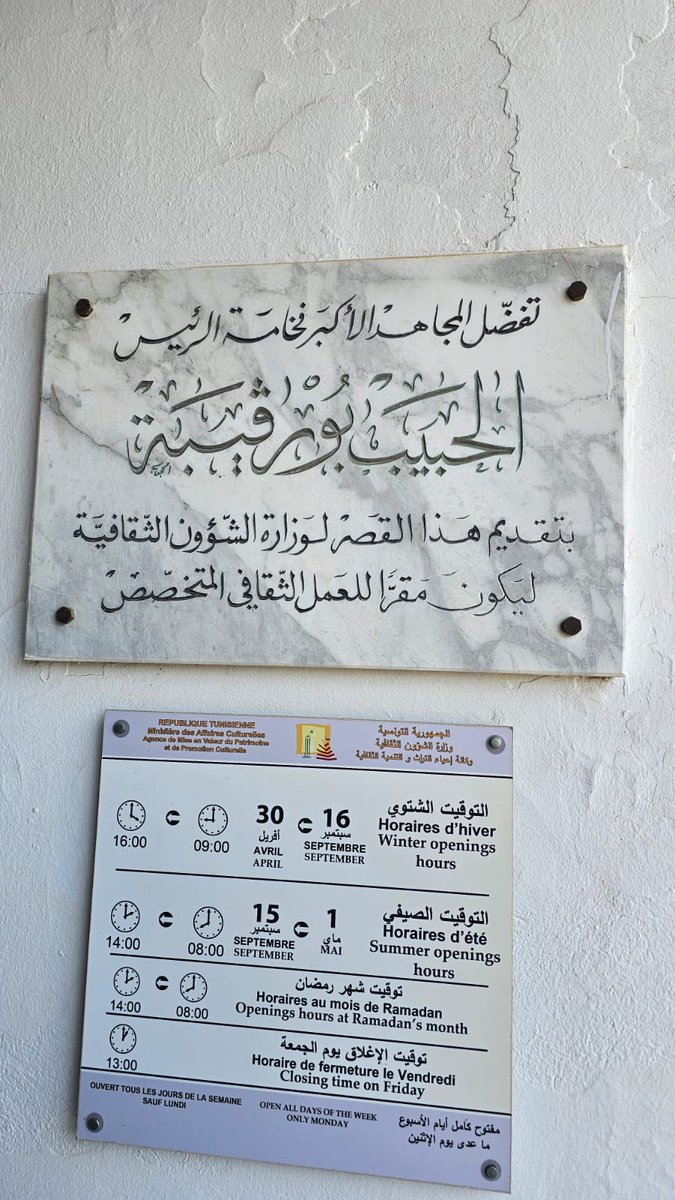 تفضّل المجاهد الأكبر فخامة الرئيس
الحبيب بورڤيبة
بتقديم هَذا القصر لوزارة الشّؤون الثّقافيَّة
ليَكونَ مَقرًّا للعَمل الثّقافي المتخصّص
REPUBLIQUE TUNISIENNE
Ministère des Affaires Culturelles
Agence de Mise en Valeur du Patrimoine
et de Promotion Culturelle
الجمهورية التونسية
وزارة الشؤون الثقافية
وكالة إحياء التراث و التنمية الثقافية
التوقيت الشتوي
Horaires d'hiver
Winter openings
hours
16
سبتمبر
SEPTEMBRE
SEPTEMBER
30
أفريل
AVRIL
APRIL
09:00
16:00
التوقيت الصيفي
Horaires d'été
Summer openings
hours
1
ماي
MAI
15
سبتمبر
SEPTEMBRE
SEPTEMBER
08:00
14:00
توقيت شهر رمضان
Horaires au mois de Ramadan
Openings hours at Ramadan's month
08:00
14:00
توقيت الإغلاق يوم الجمعة
Horaire de fermeture le Vendredi
Closing time on Friday
13:00
OUVERT TOUS LES JOURS DE LA SEMAINE
SAUF LUNDI
OPEN ALL DAYS OF THE WEEK
ONLY MONDAY
مفتوح كامل أيام الأسبوع
ما عدى يوم الإثنين